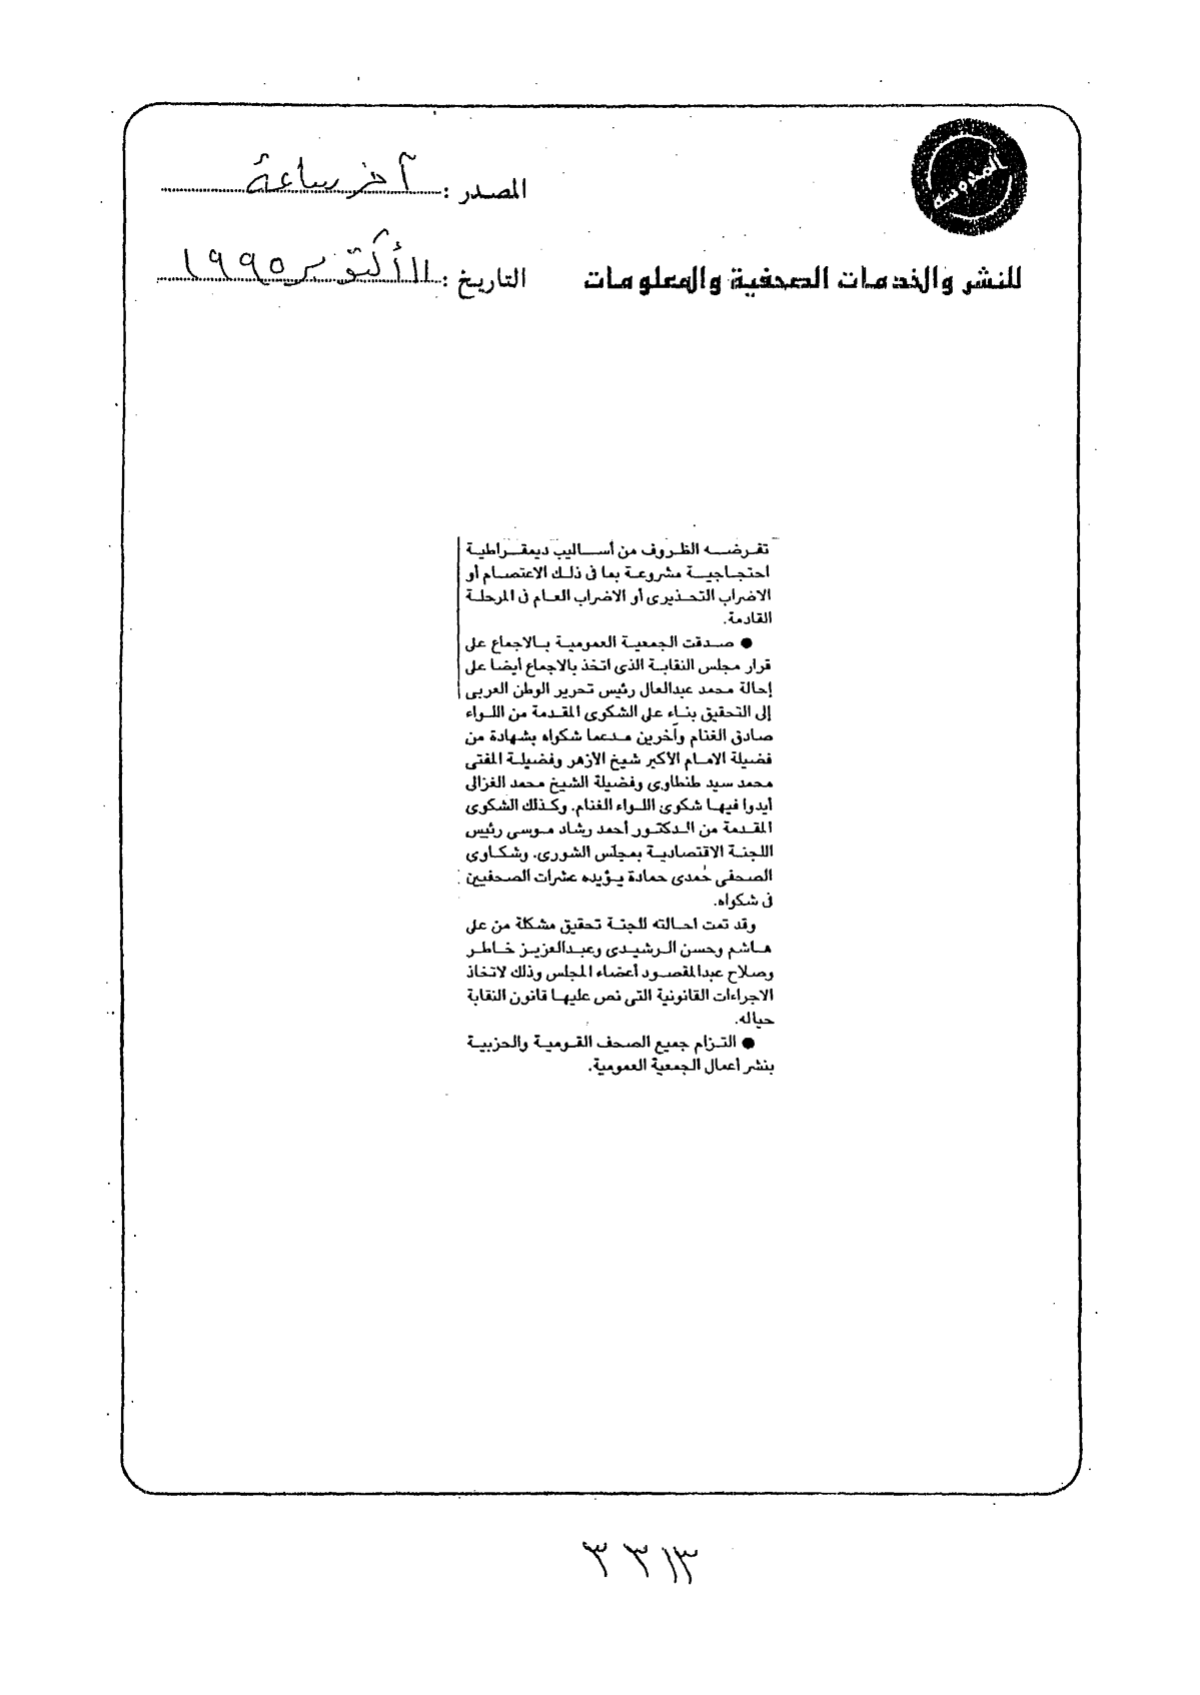 المدوسة
المصدر : آخر ساعة
للنشر والخدمات الصحفية والمعلومات
التاريخ : ١١ أكتوبر ١٩٩٥
تفرضه الظروف من أساليب ديمقراطية
احتجاجية مشروعة بما فى ذلك الاعتصام أو
الاضراب التحذيرى أو الاضراب العام فى المرحلة
القادمة.
● صدقت الجمعية العمومية بالاجماع على
قرار مجلس النقابة الذى اتخذ بالاجماع أيضا على
إحالة محمد عبدالعال رئيس تحرير الوطن العربى
إلى التحقيق بناء على الشكوى المقدمة من اللواء
صادق الغنام وآخرين مدعما شكواه بشهادة من
فضيلة الامام الأكبر شيخ الأزهر وفضيلة المفتى
محمد سيد طنطاوى وفضيلة الشيخ محمد الغزالى
أيدوا فيها شكوى اللواء الغنام. وكذلك الشكوى
المقدمة من الدكتور أحمد رشاد موسى رئيس
اللجنة الاقتصادية بمجلس الشورى. وشكاوى
الصحفى حمدى حمادة يؤيده عشرات الصحفيين
فى شكواه.
وقد تمت احالته للجنة تحقيق مشكلة من على
هاشم وحسن الرشيدى وعبدالعزيز خاطر
وصلاح عبدالمقصود أعضاء المجلس وذلك لاتخاذ
الاجراءات القانونية التى نص عليها قانون النقابة
حياله.
● التزام جميع الصحف القومية والحزبية
بنشر أعمال الجمعية العمومية.